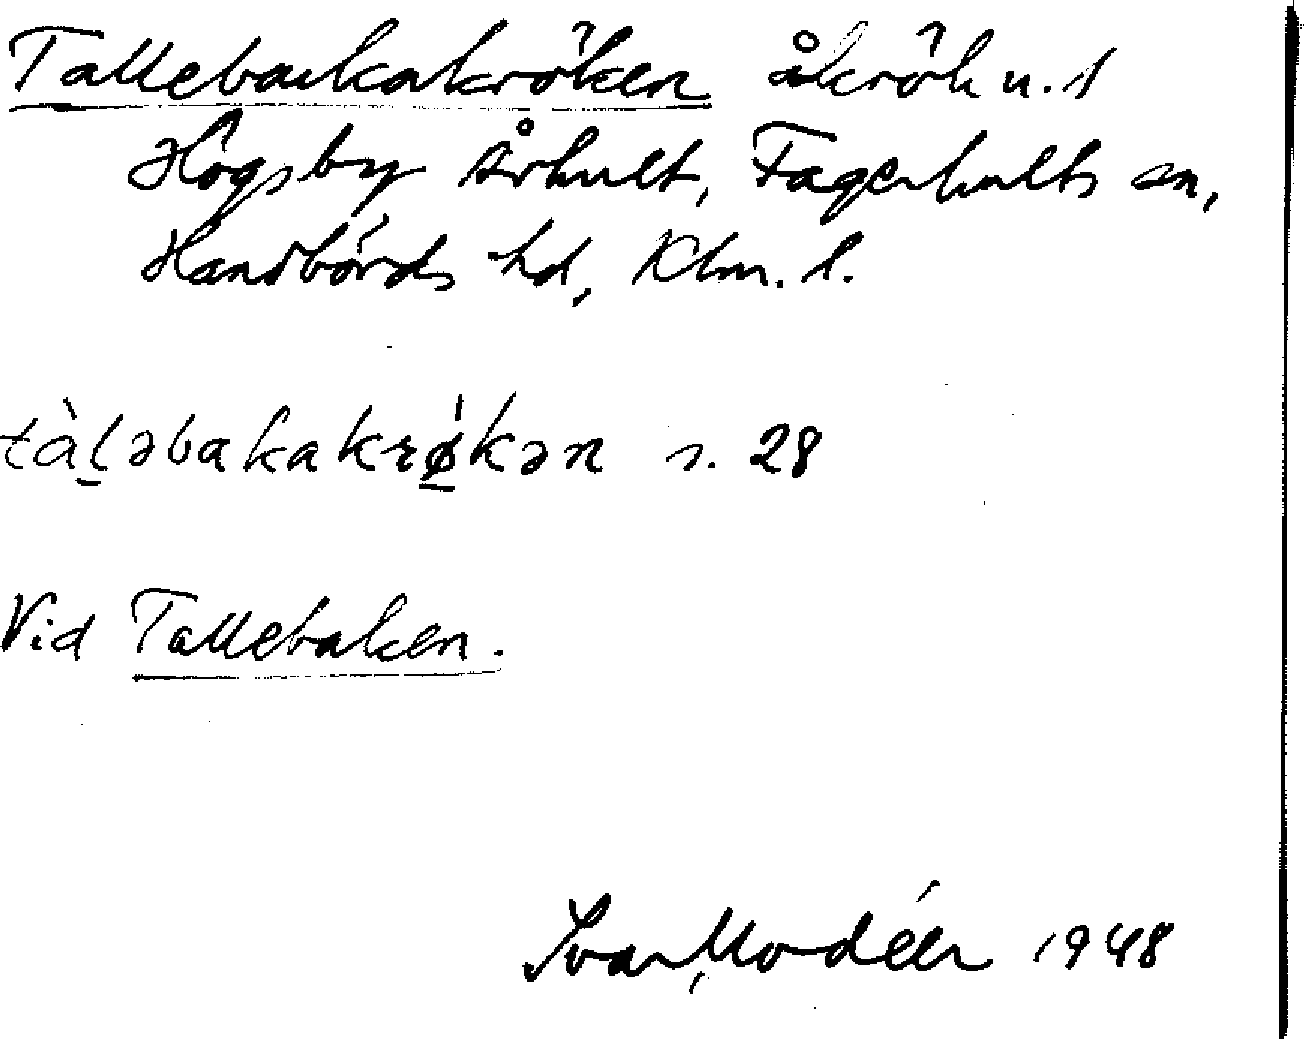 Tallebackakröken åkrök u. 1
Högsby Århult, Fagerhults sn,
Handbörds hd, Klm. l.
tàl̠əbakakrø̠̀kən s. 28
Vid Tallebaken.
Ivar Modéer 1948